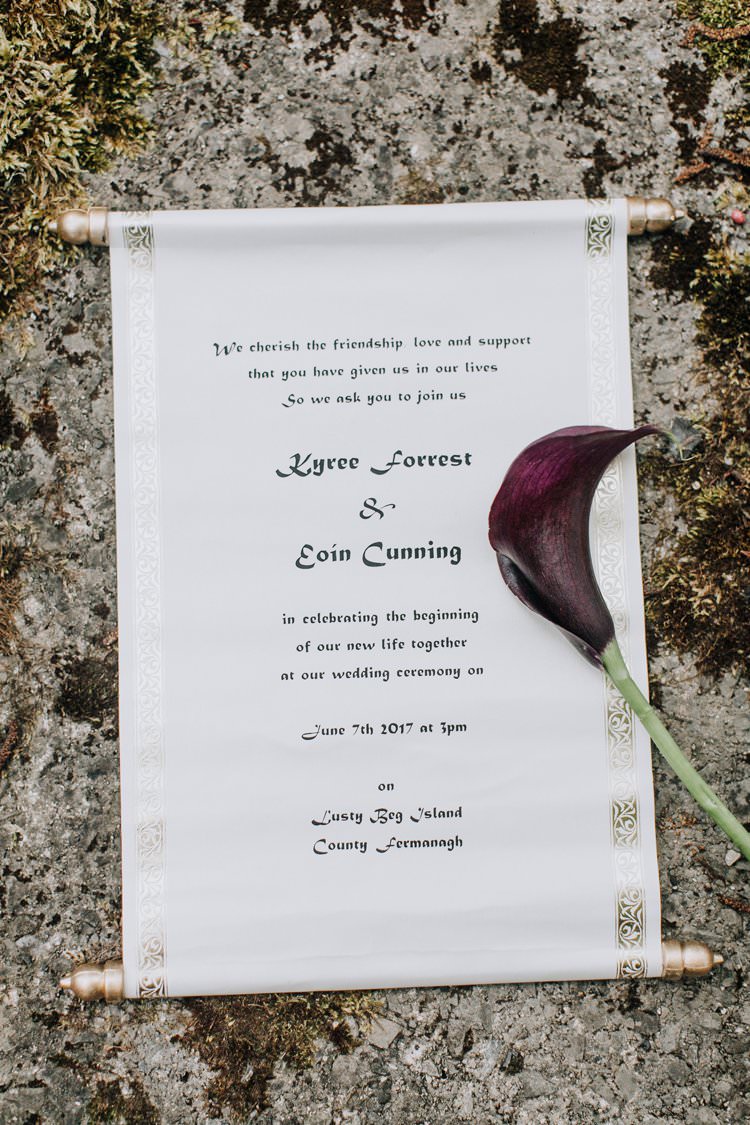 We cherish the friendship love and support
that you have given us in our lives
So we ask you to join us
Kyree Forrest
&
Eoín Cunning
in celebrating the beginning
of our new life together
at our wedding ceremony on
June 7th 2017 at 3pm
on
Lusty Beg Island
County Fermanagh